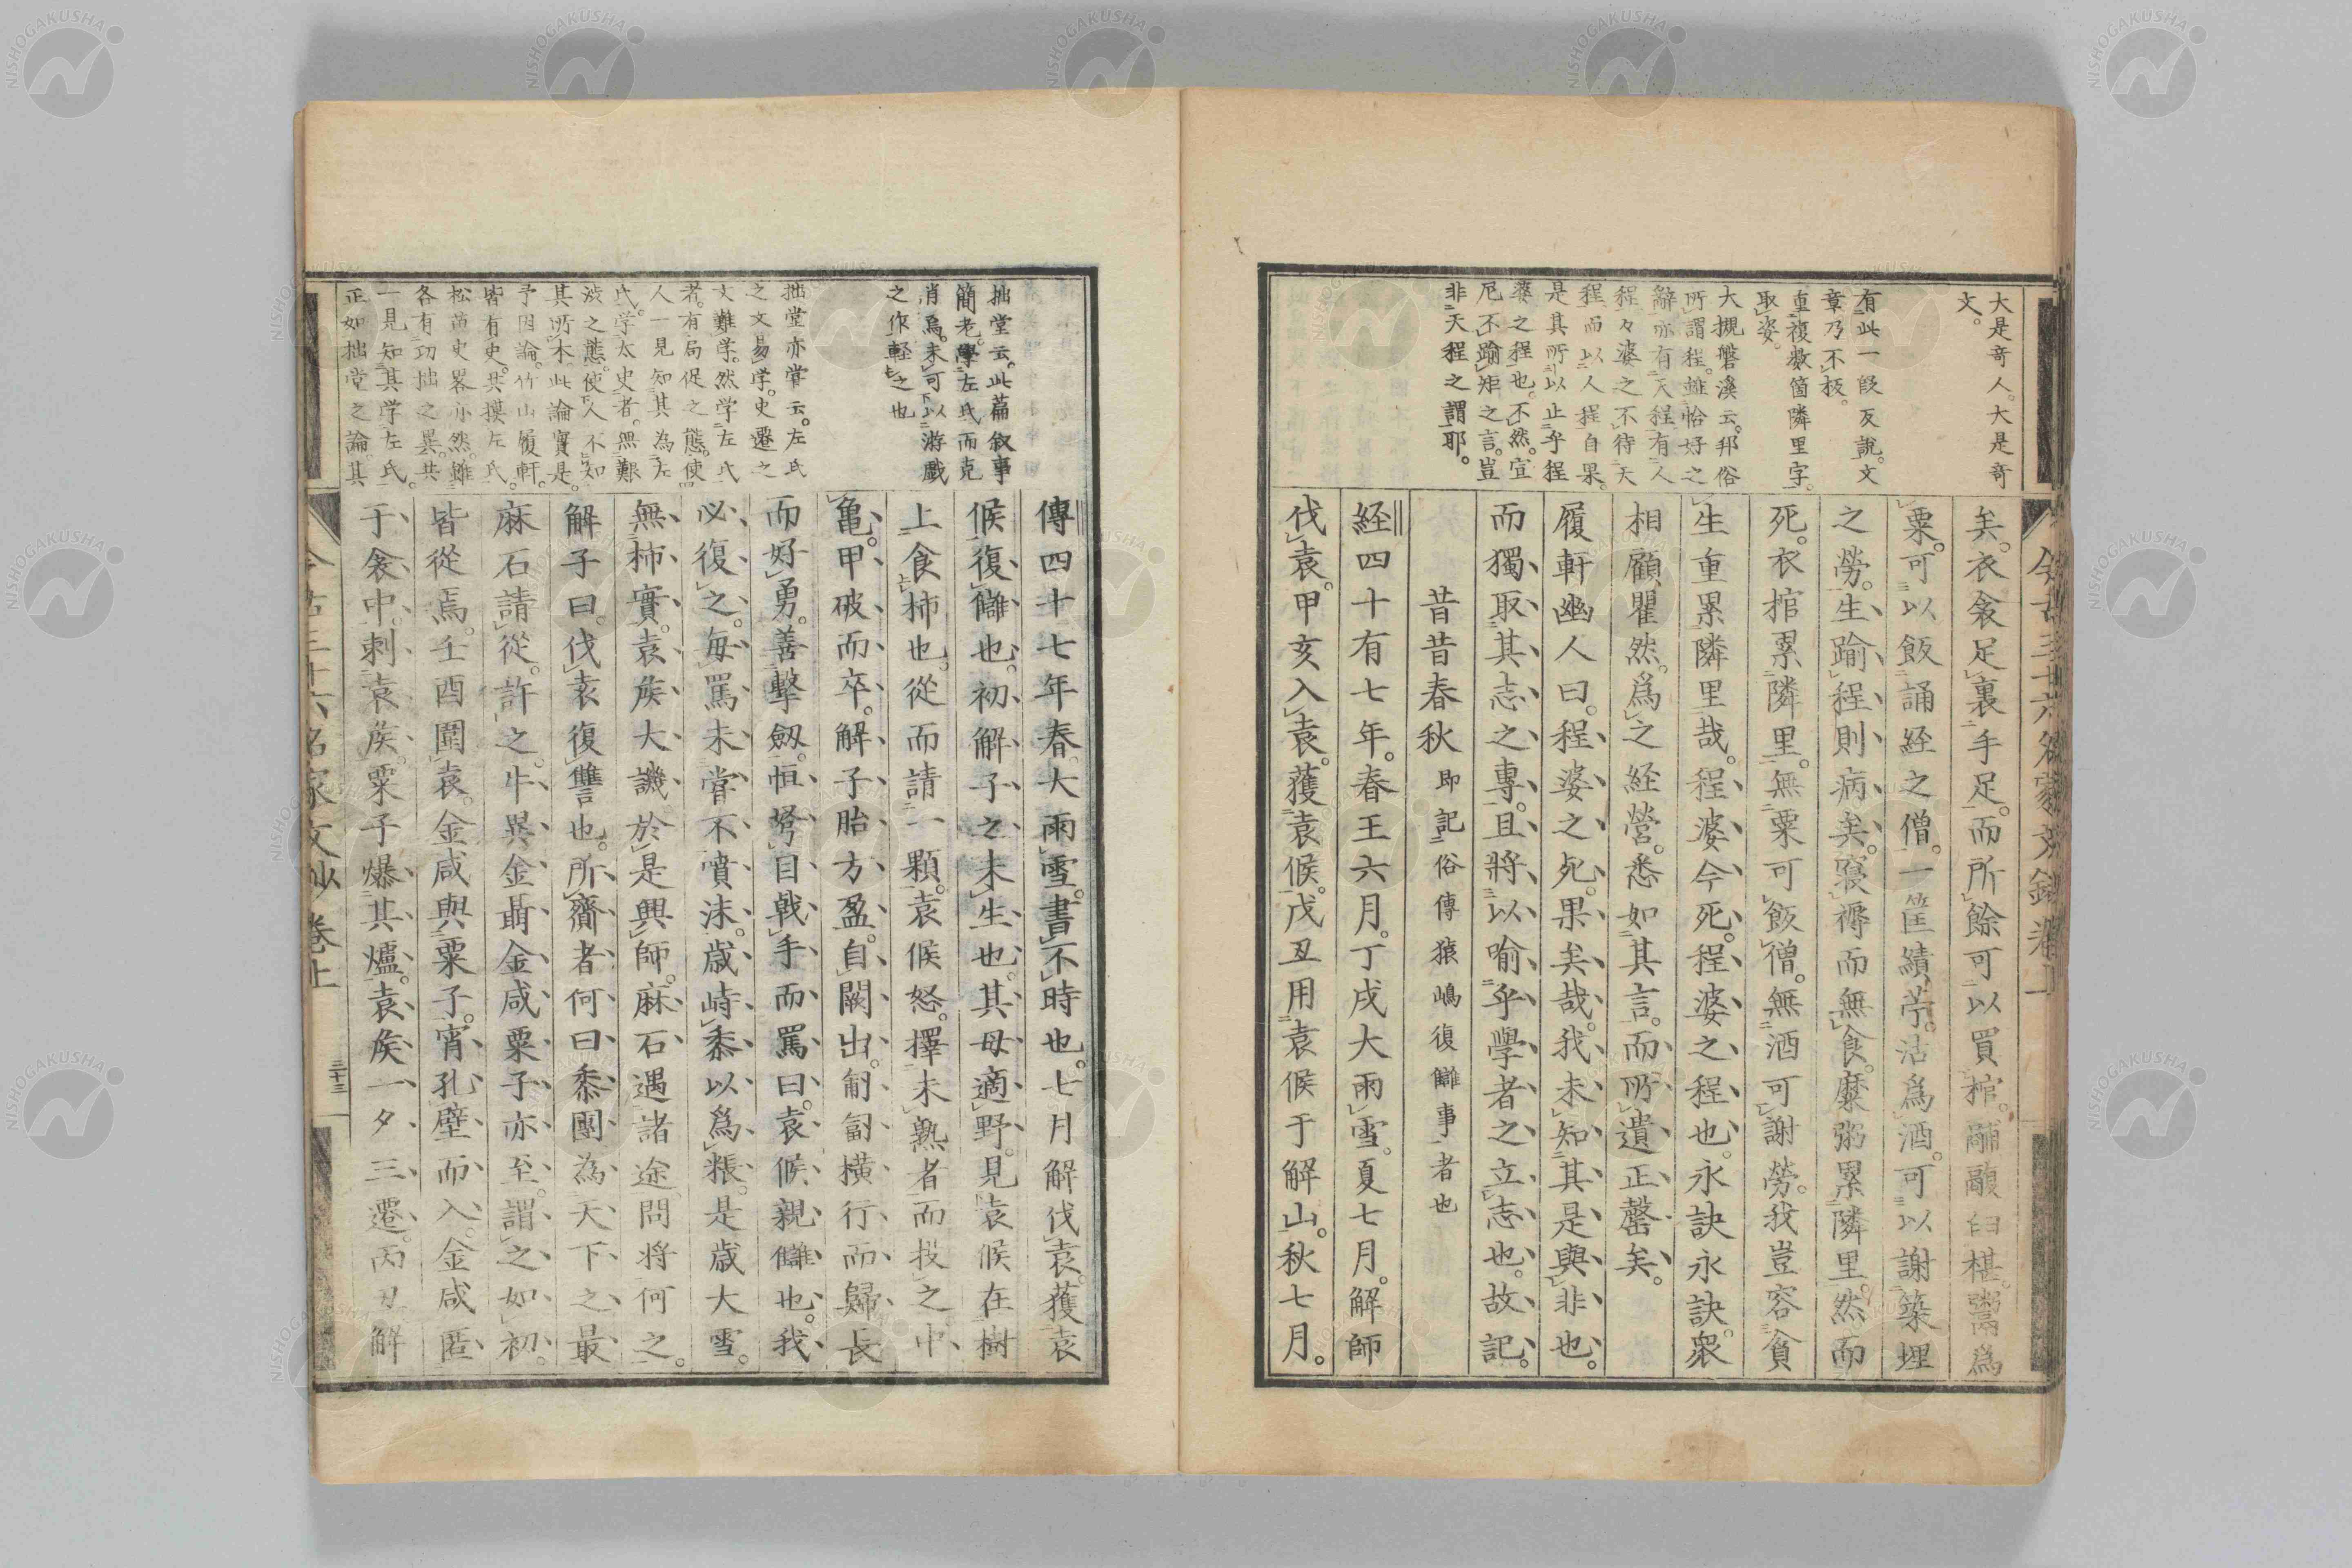 大是奇人。大是奇
文。
有此一段反說。文
章乃不板。
重複数箇隣里字。
取姿。
大槻磐溪云。邦俗
所謂程。雖恰好之
辭。亦有天程。有人
程々婆之不待天
程而以人程自果。
是其所以止乎程
婆之程也。不然。宣
尼不踰矩之言。豈
非天程之謂耶。
矣。衣衾足裏手足。而所餘可以買棺。鬴鬲臼椹。鬻爲
粟。可以飯誦経之僧。一筐績苧。沽爲酒。可以謝築埋
之勞。生踰程。則病矣。寝褥而無食。糜粥累隣里。然而
死。衣棺累隣里。無粟可飯僧。無酒可謝勞。我豈容貪
生重累隣里哉。程婆今死。程婆之程也。永訣永訣。衆
相顧瞿然。爲之経營。悉如其言。而所遺正罄矣。
履軒幽人曰。程婆之死。果矣哉。我未知其是與非也。
而獨取其志之專。且將以喻乎學者之立志也。故記。
昔昔春秋 即記俗傳猿嶋復讎事者也
経四十有七年。春王六月。丁戌大雨雪。夏七月。解師
伐袁。甲亥入袁。獲袁候。戊丑用袁候于解山。秋七月。
拙堂云。此篇叙事
簡老。學左氏而克
肖焉。未可以游戯
之作軽之也
拙堂亦嘗云。左氏
之文易学。史遷之
文難学。然学左氏
者。有局促之態。使
人一見知其為左
氏。学太史者。無艱
渋之態。使人不知
其所本。此論實是。
予因論。竹山履軒。
皆有史。共摸左氏。
松苗史畧亦然。雖
各有功拙之異。共
一見知其学左氏。
正如拙堂之論。其
傳四十七年春。大雨雪。書不時也。七月解伐袁。獲袁
候。復讎也。初解子之未生也。其母適野。見袁候在樹
上食柿也。從而請一顆。袁候怒。擇未熟者而投之。中
亀。甲破而卒。解子胎方盈。自闕出。匍匐横行而歸。長
而好勇。善擊劔。恒努目戟手而罵曰。袁候親讎也。我
必復之。毎罵未嘗不噴沫。歳峙黍以爲粻。是歳大雪。
無柿實。袁矦大譏。於是興師。麻石遇諸途。問將何之。
解子曰。伐袁復讐也。所齎者何。曰黍團為天下之最
麻石請從。許之。牛異金聶金咸粟子亦至。謂之如初。
皆從焉。壬酉圍袁。金咸與粟子。宵孔壁而入。金咸匿
于衾中。刺袁矦。粟子爆其爐。袁矦一夕三遷。丙丑解
今古三十六名家文抄巻上
三十三